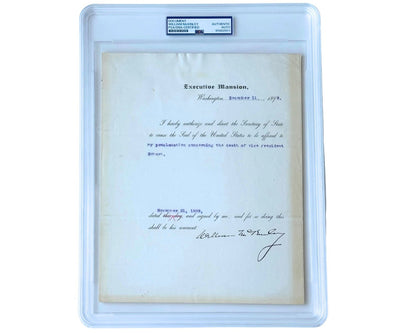 DOCUMENT
WILLIAM McKINLEY
PSA/DNA CERTIFIED
AUTHENTIC
AUTO
Executive Mansion,
Washington, November 21, 1899.
I hereby authorize and direct the Secretary of State
to cause the Seal of the United States to be affixed to
my proclamation concerning the death of vice President
Hobart,
November 21, 1899,
dated this day, and signed by me, and for so doing this
shall be his warrant.
William McKinley